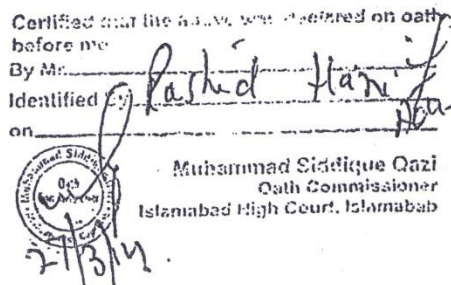 Certified that the above was declared on oath
before me
By Mr.
Identified by Rashid Hanif
on
Muhammad Siddique Qazi
Oath Commissioner
Islamabad High Court, Islamabab
Muhammad Siddiq
Oath
2/3/14.